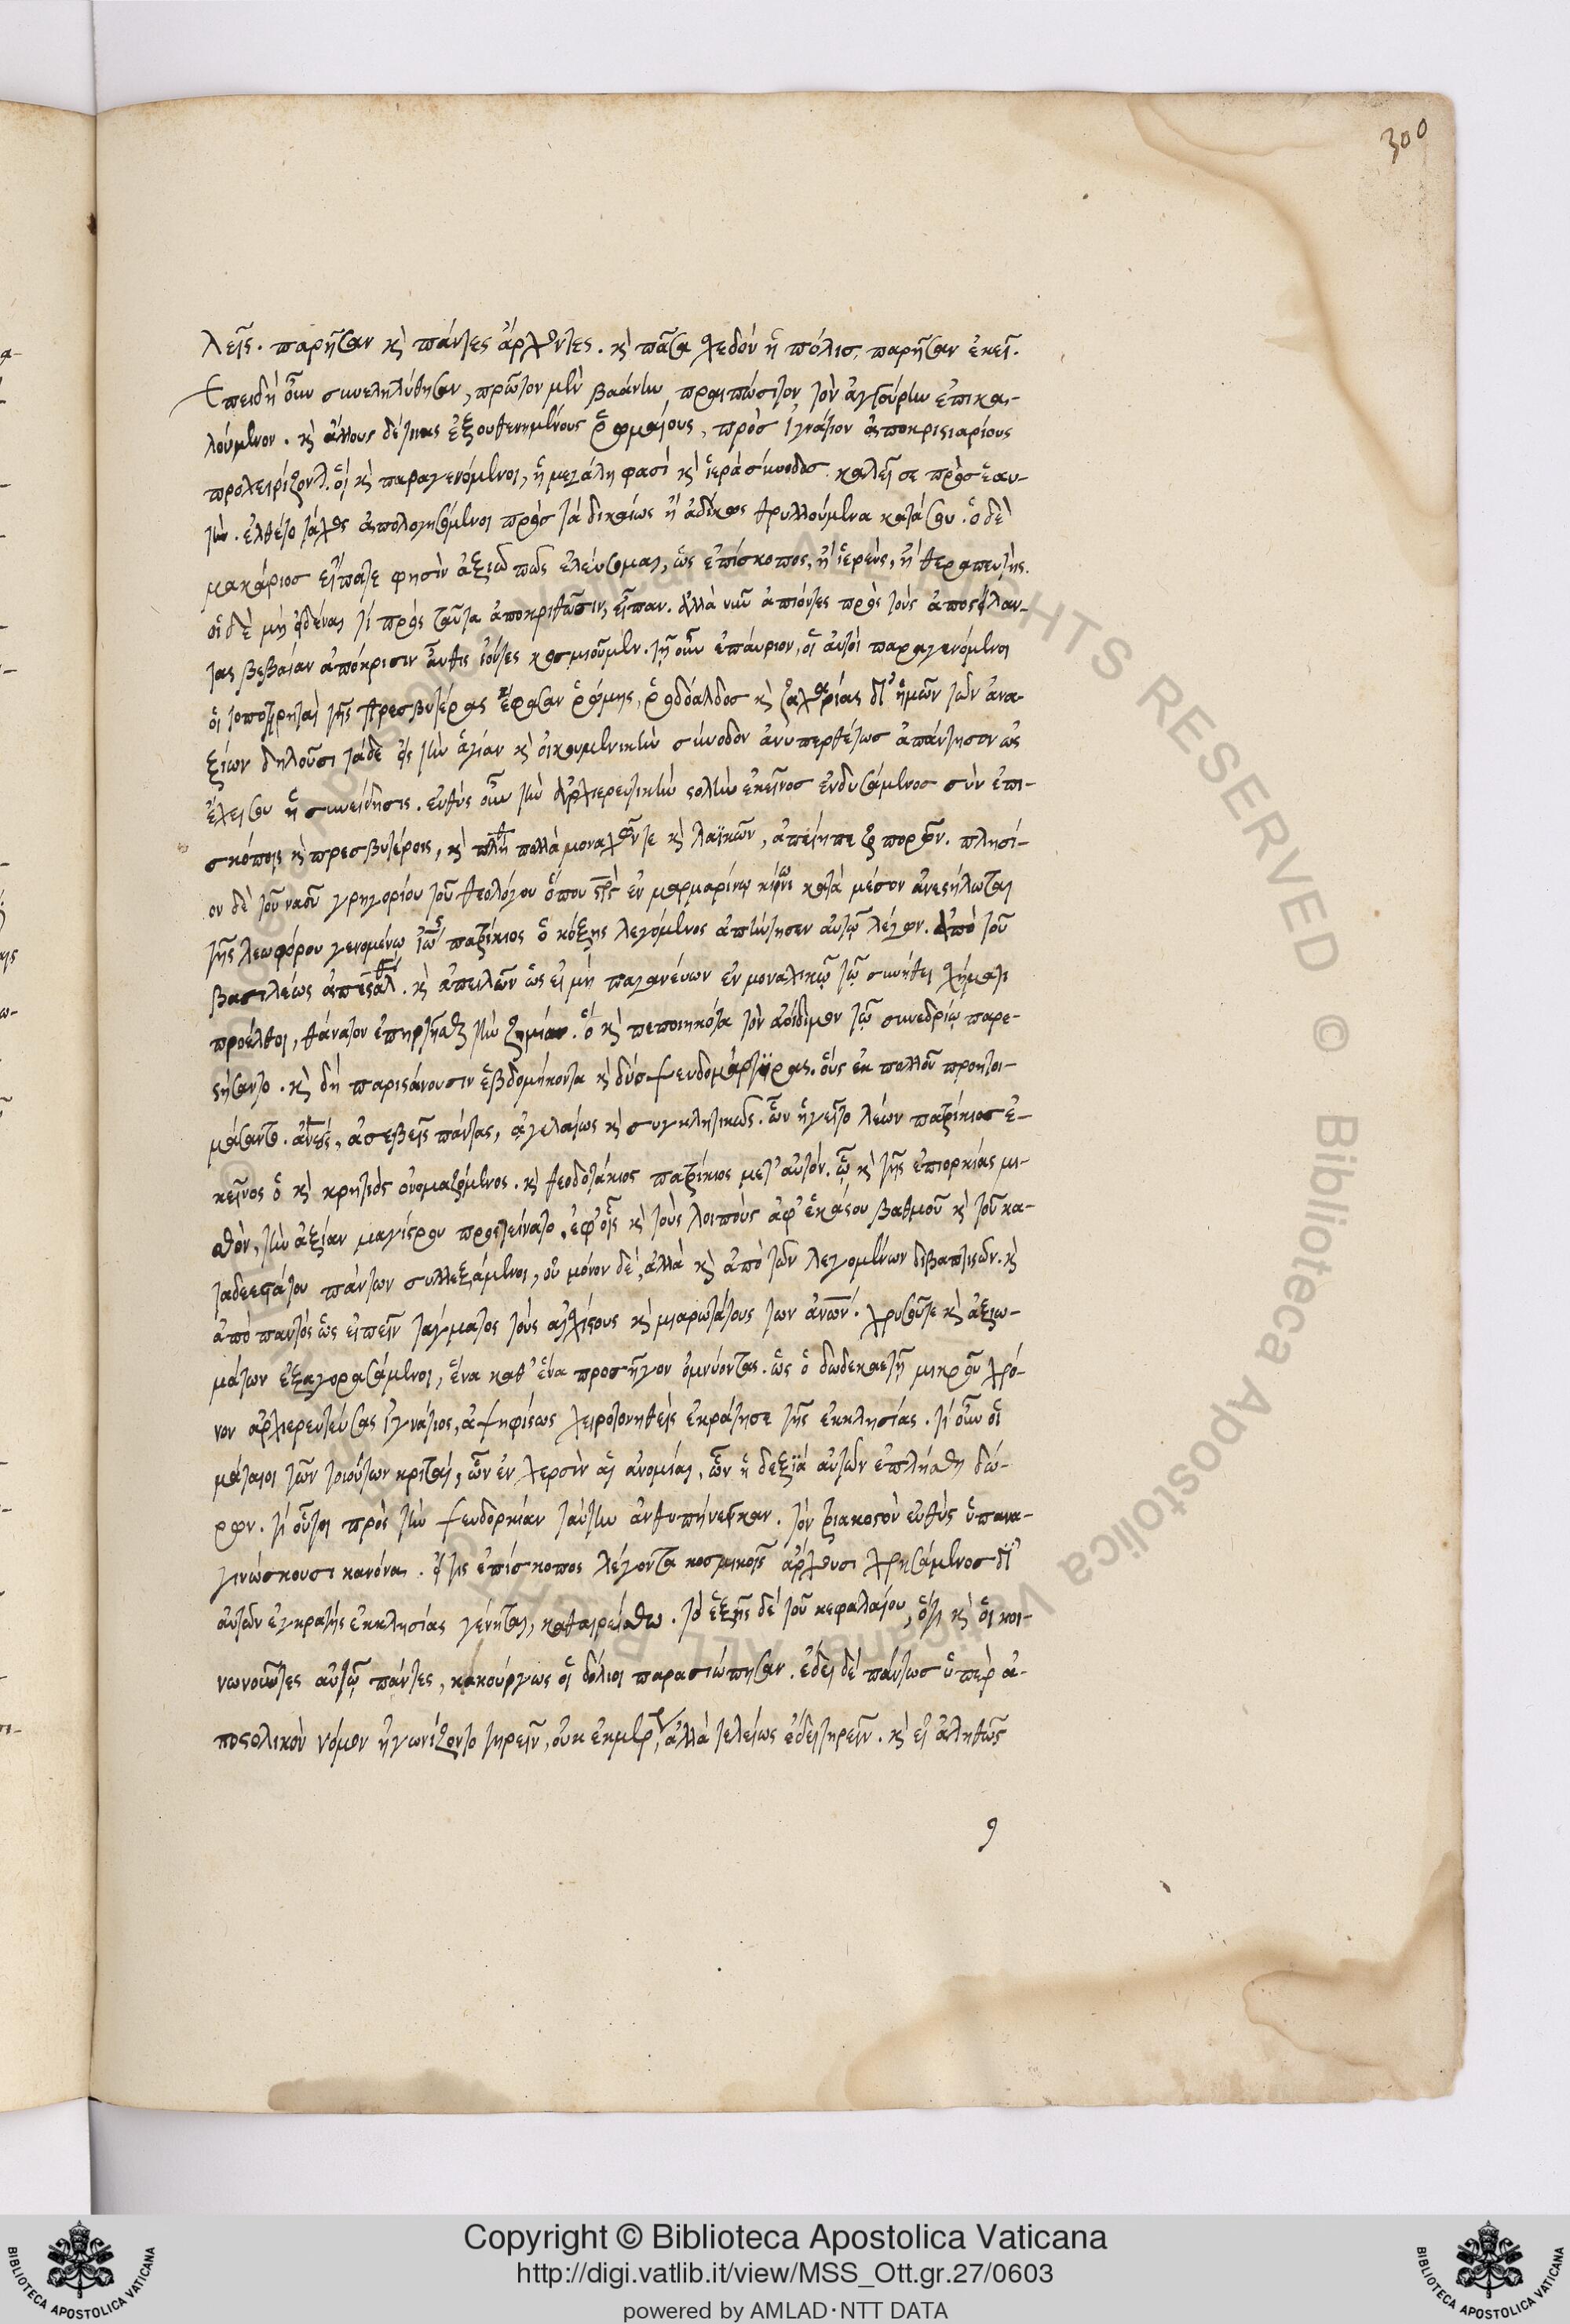 300
λεῖς. παρῆσαν κὶ πάντες ἄρχοντες. κὶ πᾶσα σχεδὸν ἡ πόλις παρῆσαν ἐκεῖ.
Ἐπειδὴ οὖν συνεληλύθησαν, πρῶτον μὲν βαάνην πραιπώσιτον τὸν ἀγγούρην ἐπικα-
λούμενον. κὶ ἄλλους δέ τινας ἐξουθενημένους ῥωμαίους, πρὸς ἰγνάτιον ἀποκρισιαρίους
προχειρίζοντ. οἳ κὶ παραγενόμενοι, ἡ μεγάλη φασὶ κὶ ἱερὰ σύνοδος καλεῖ σε πρὸς ἑαυ-
τήν. ἐλθέ τὸ τάχος ἀπολογησόμενος πρὸς τὰ δικαίως ἢ ἀδίκως θρυλλούμενα κατὰ σου. ὁ δὲ
μακάριος εἴπατε φησὶν ἀξιῶ πῶς ἐλεύσομαι, ὡς ἐπίσκοπος, ἢ ἱερεὺς, ἢ θεραπευτής.
οἱ δὲ μὴ εἰδέναι τί πρὸς ταῦτα ἀποκριθῶσιν, εἶπαν. ἀλλὰ νῦν ἀπιόντες πρὸς τοὺς ἀποστείλαν-
τας βεβαίαν ἀπόκρισιν αὖθις ἰόντες κοσμιοῦμεν. τῇ οὖν ἐπαύριον, οἱ αὐτοὶ παραγενόμενοι
οἱ τοποτηρηταὶ τῆς πρεσβυτέρας ἔφασαν ῥώμης, ῥοδόαλδος κὶ ζαχαρίας δι' ἡμῶν τῶν ἀνα-
ξίων δηλοῦσι τάδε εἰς τὴν ἁγίαν κὶ οἰκουμενικὴν σύνοδον ἀνυπερθέτως ἀπάντησον ὡς
ἔχει σου ἡ συνείδησις. εὐθὺς οὖν τὴν ἀρχιερευτικὴν στολὴν ἐκεῖνος ἐνδυσάμενος σὺν ἐπι-
σκόποις κὶ πρεσβυτέροις, κὶ πλήθει πολλὰ μοναχῶν τε κὶ λαϊκῶν, ἀπείηπε ζο πορῶν. πλησί-
ον δὲ τοῦ ναοῦ γρηγορίου τοῦ θεολόγου ὅπου στρς ἐν μαρμαρίνῳ κίονι κατὰ μέσον ἀνεστήλωται
τῆς λεωφόρου γενομένῳ ἰω παρίκιος ὁ κόξης λεγόμενος ἀπήντησεν αὐτῷ λέγων. ἀπὸ τοῦ
βασιλέως ἀπεσταλ. κὶ ἀπειλῶν ὡς εἰ μὴ παγανεύων ἐν μοναχικῷ τῷ συνήθει σχήματι
προέλθοι, θάνατον ἐπηρτῆσθαι τὴν ζημίαν. ὃ κὶ πεποιηκότα τὸν ἀοίδιμον τῷ συνεδρίῳ παρε-
στήσαντο. κὶ δὴ παριστάνουσιν ἑβδομήκοντα κὶ δύο ψευδομάρτυρας. οὓς ἐκ πολλοῦ προητοι-
μάσαντο. ἄνδρας, ἀσεβεῖς πάντας, ἀγελαίως κὶ συγκλητικῶς. ὧν ἡγεῖτο λέων πατρίκιος ἐ-
κεῖνος ὁ κὶ κρητὸς ὀνομαζόμενος. κὶ θεοδοτάκιος πατρίκιος μετ' αὐτόν. ᾧ κὶ τῆς ἐπιορκίας μι-
σθὸν, τὴν ἀξίαν μαγίστρου προετείνατο. ἐφ' οἷς κὶ τοὺς λοιποὺς ἀφ' ἑκάστου βαθμοῦ κὶ τοῦ κα-
ταδεεστάτου πάντων συλλεξάμενοι, οὐ μόνον δέ, ἀλλὰ κὶ ἀπὸ τῶν λεγομένων διβαπτιστῶν. κὶ
ἀπὸ παντὸς ὡς εἰπεῖν τάγματος τοὺς αἰσχίστους κὶ μιαρωτάτους των ἀνων. χρυσοῦ τε κὶ ἀξιω-
μάτων ἐξαγορασάμενοι, ἕνα καθ' ἕνα προσῆγον ὀμνύοντας. ὡς ὁ δωδεκαετῆ μικροῦ χρό-
νον ἀρχιερευτεύσας ἰγνάτιος, ἀψηφίστως χειροτονηθεὶς ἐκράτησε τῆς ἐκκλησίας. τί οὖν οἱ
μάταιοι τῶν τοιούτων κριταί, ὧν ἐν χερσὶν αἱ ἀνομίαι, ὧν ἡ δεξιὰ αὐτῶν ἐπλήσθη δώ-
ρων. τί οὗτοι πρὸς τὴν ψευδορκίαν ταύτην ἀνθυπήνεγκαν. τὸν τριακοστὸν εὐθὺς ὑπανα-
γινώσκουσι κανόνα. εἴ τις ἐπίσκοπος λέγοντα κοσμικοῖς ἄρχουσι χρησάμενος δι'
αὐτῶν ἐγκρατὴς ἐκκλησίας γένηται, καθαιρείσθω. τὸ ἑξῆς δὲ τοῦ κεφαλαίου, ὅτι κὶ οἱ κοι-
νωνοῦντες αὐτῷ πάντες, κακούργως οἱ δόλιοι παρασιώπησαν. ἔδει δὲ πάντως ὑπὲρ ἀ-
ποστολικὸν νόμον ἠγωνίζοντο τηρεῖν, οὐκ ἐκ μέρους, ἀλλὰ τελείως ἔδει τηρεῖν. κὶ εἰ ἀληθῶς
Copyright © Biblioteca Apostolica Vaticana
http://digi.vatlib.it/view/MSS_Ott.gr.27/0603
powered by AMLAD·NTT DATA